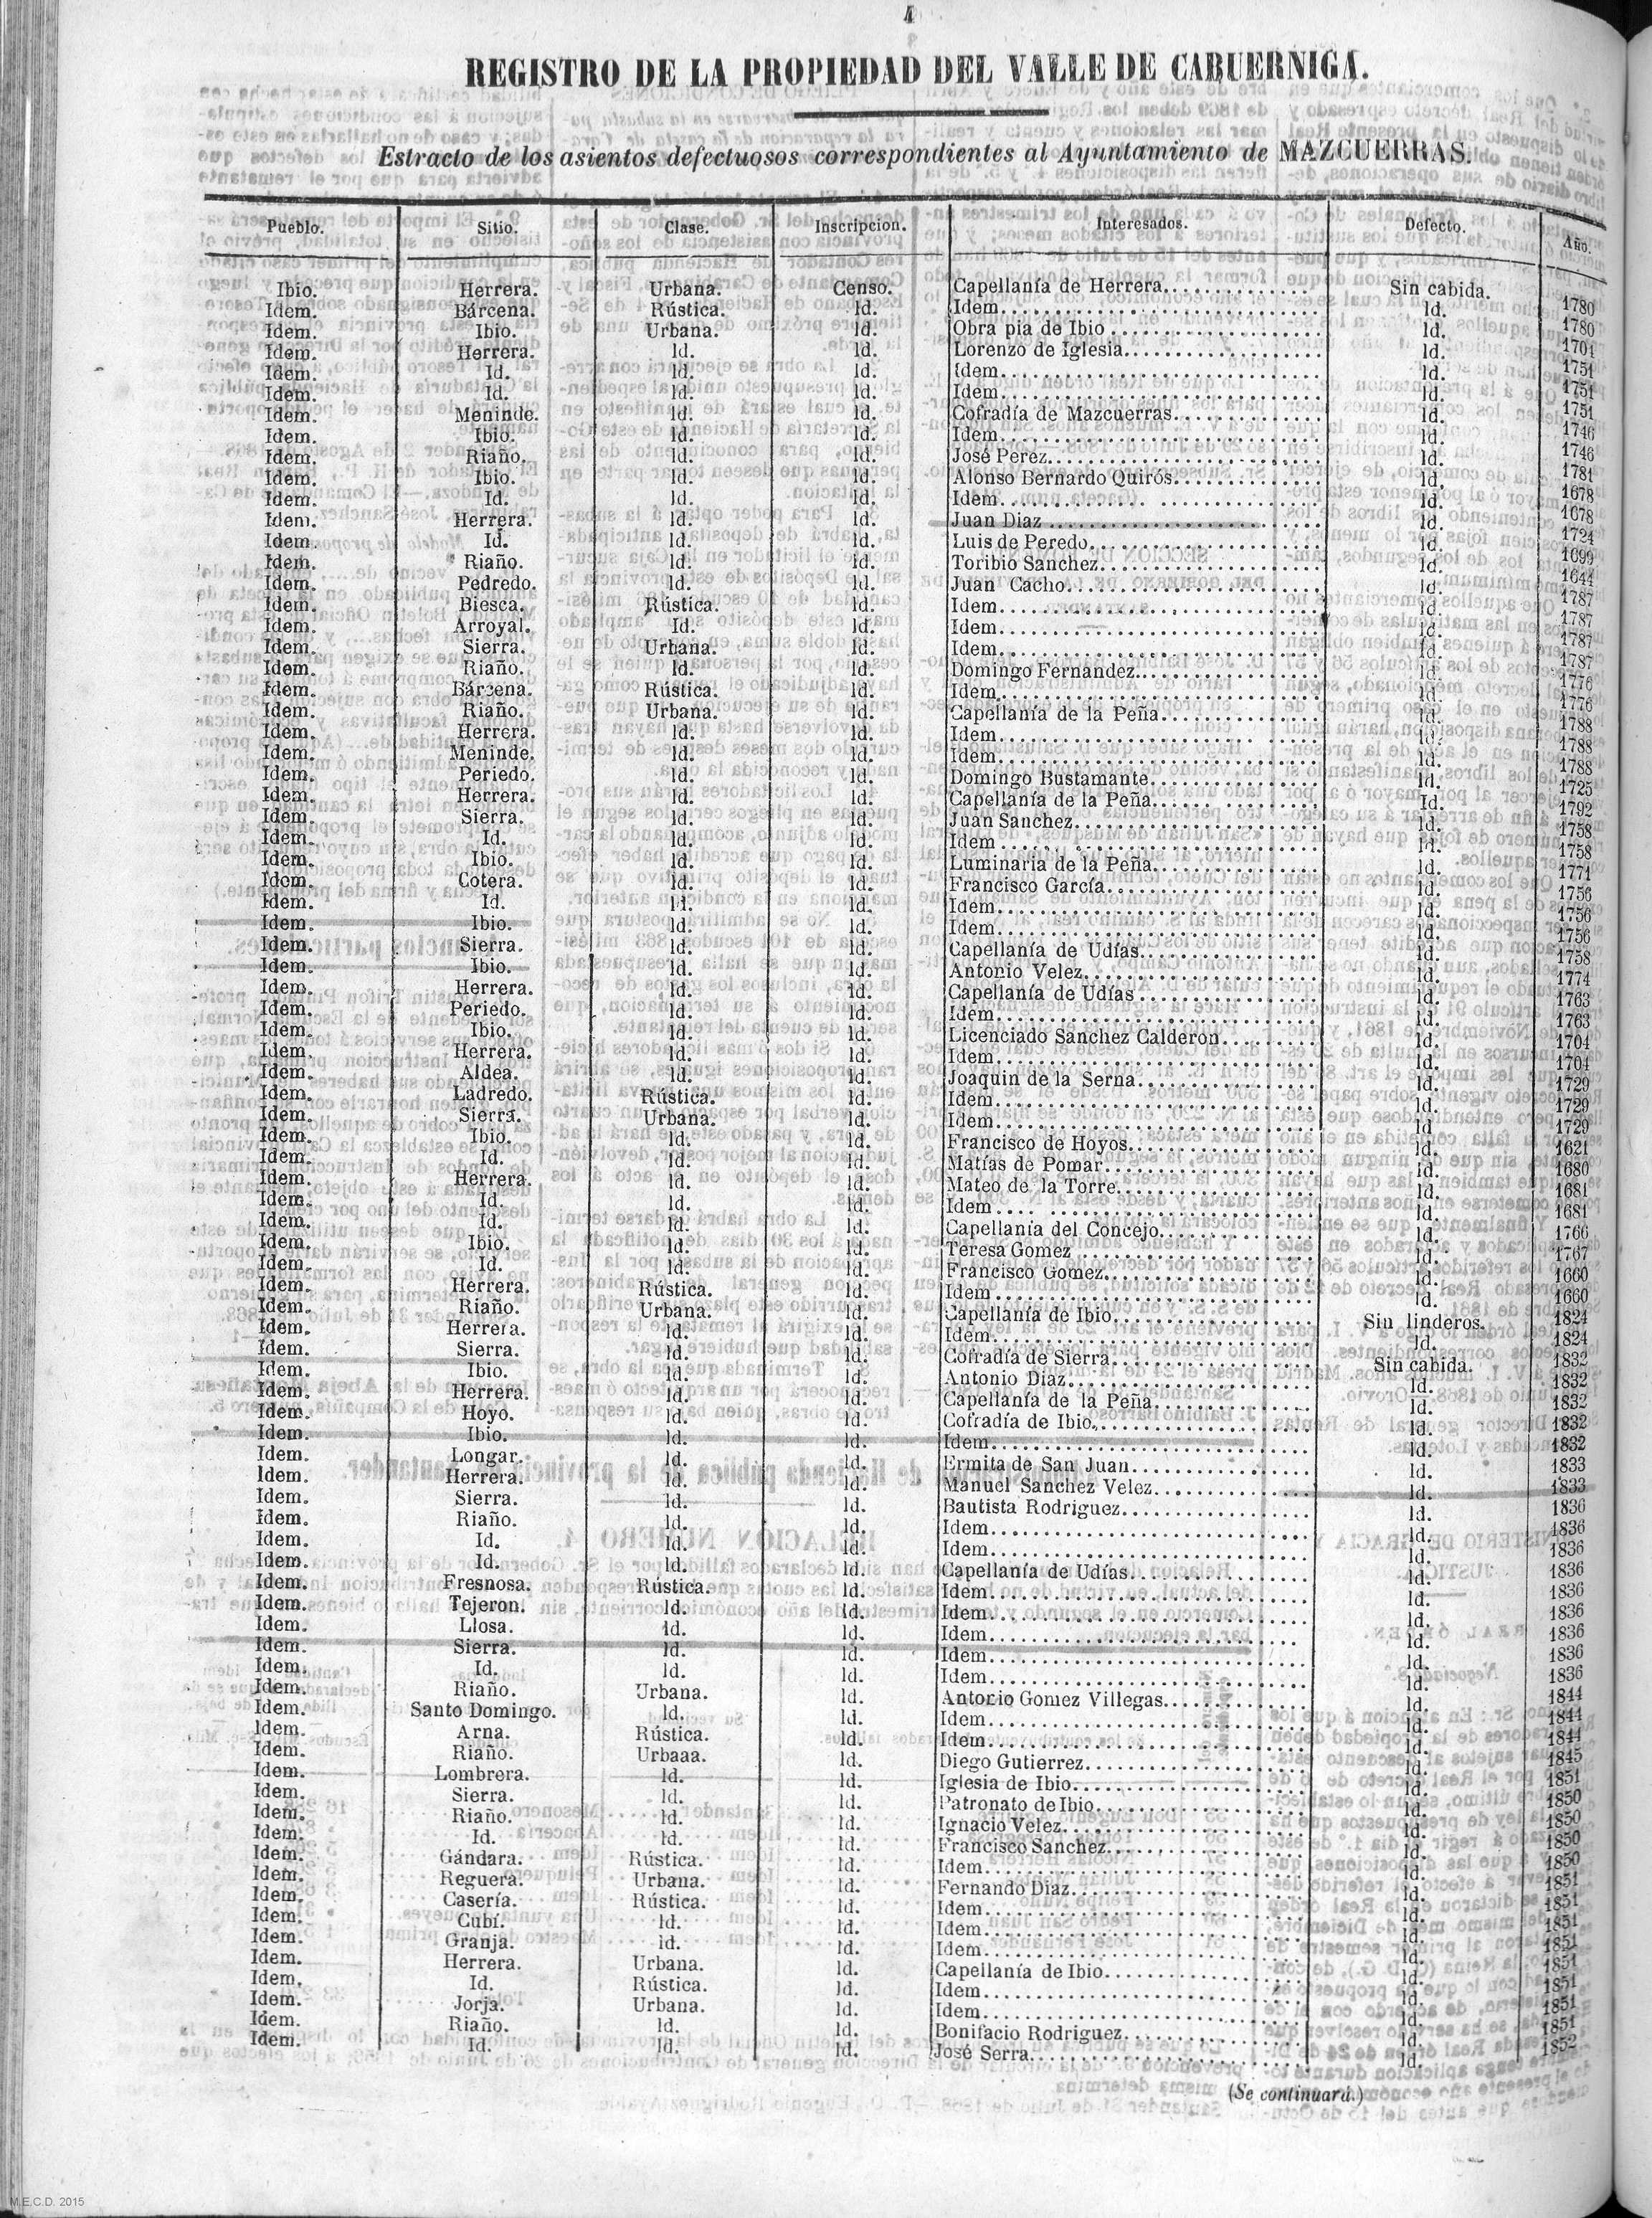 4
REGISTRO DE LA PROPIEDAD DEL VALLE DE CABUERNIGA.
Estracto de los asientos defectuosos correspondientes al Ayuntamiento de MAZCUERRAS.
Pueblo. Sitio. Clase. Inscripcion. Interesados. Defecto. Año.
Ibio. Herrera. Urbana. Censo. Capellanía de Herrera. Sin cabida. 1780
Idem. Bárcena. Rústica. Id. Idem. Id. 1780
Idem. Ibio. Urbana. Id. Obra pia de Ibio Id. 1701
Idem. Herrera. Id. Id. Lorenzo de Iglesia. Id. 1751
Idem. Id. Id. Id. Idem. Id. 1751
Idem. Id. Id. Id. Idem. Id. 1751
Idem. Meninde. Id. Id. Cofradía de Mazcuerras. Id. 1746
Idem. Ibio. Id. Id. Idem. Id. 1746
Idem. Riaño. Id. Id. José Perez. Id. 1781
Idem. Ibio. Id. Id. Alonso Bernardo Quirós. Id. 1678
Idem. Id. Id. Id. Idem. Id. 1678
Idem. Herrera. Id. Id. Juan Diaz Id. 1724
Idem. Id. Id. Id. Luis de Peredo. Id. 1699
Idem. Riaño. Id. Id. Toribio Sanchez. Id. 1644
Idem. Pedredo. Id. Id. Juan Cacho. Id. 1787
Idem. Biesca. Rústica. Id. Idem. Id. 1787
Idem. Arroyal. Id. Id. Idem. Id. 1787
Idem. Sierra. Urbana. Id. Idem. Id. 1787
Idem. Riaño. Id. Id. Domingo Fernandez. Id. 1776
Idem. Bárcena. Rústica. Id. Idem. Id. 1776
Idem. Riaño. Urbana. Id. Capellanía de la Peña. Id. 1788
Idem. Herrera. Id. Id. Idem. Id. 1788
Idem. Meninde. Id. Id. Idem. Id. 1788
Idem. Periedo. Id. Id. Domingo Bustamante. Id. 1725
Idem. Herrera. Id. Id. Capellanía de la Peña. Id. 1792
Idem. Sierra. Id. Id. Juan Sanchez. Id. 1758
Idem. Id. Id. Id. Idem. Id. 1758
Idem. Ibio. Id. Id. Luminaria de la Peña. Id. 1771
Idem. Cotera. Id. Id. Francisco García. Id. 1756
Idem. Id. Id. Id. Idem. Id. 1756
Idem. Ibio. Id. Id. Idem. Id. 1756
Idem. Sierra. Id. Id. Capellanía de Udías. Id. 1758
Idem. Ibio. Id. Id. Antonio Velez. Id. 1774
Idem. Herrera. Id. Id. Capellanía de Udías Id. 1763
Idem. Periedo. Id. Id. Idem. Id. 1763
Idem. Ibio. Id. Id. Licenciado Sanchez Calderon. Id. 1704
Idem. Herrera. Id. Id. Idem. Id. 1704
Idem. Aldea. Id. Id. Joaquin de la Serna. Id. 1729
Idem. Ladredo. Rústica. Id. Idem. Id. 1729
Idem. Sierra. Urbana. Id. Idem. Id 1729
Idem. Ibio. Id. Id. Francisco de Hoyos. Id. 1621
Idem. Id. Id. Id. Matías de Pomar. Id. 1680
Idem. Herrera. Id. Id. Mateo de la Torre. Id. 1681
Idem. Id. Id. Id. Idem. Id. 1681
Idem. Id. Id. Id. Capellanía del Concejo. Id. 1766
Idem. Ibio. Id. Id. Teresa Gomez Id. 1767
Idem. Id. Id. Id. Francisco Gomez. Id. 1660
Idem. Herrera. Rústica. Id. Idem. Id. 1660
Idem. Riaño. Urbana. Id. Capellanía de Ibio. Sin linderos. 1824
Idem. Herrera. Id. Id. Idem. Id. 1824
Idem. Sierra. Id. Id. Cofradía de Sierra. Sin cabida. 1832
Idem. Ibio. Id. Id. Antonio Diaz. Id. 1832
Idem. Herrera. Id. Id. Capellanía de la Peña. Id. 1832
Idem. Hoyo. Id. Id. Cofradía de Ibio. Id. 1832
Idem. Ibio. Id. Id. Idem. Id. 1832
Idem. Longar. Id. Id. Ermita de San Juan. Id. 1833
Idem. Herrera. Id. Id. Manuel Sanchez Velez. Id. 1833
Idem. Sierra. Id. Id. Bautista Rodriguez. Id. 1836
Idem. Riaño. Id. Id. Idem. Id. 1836
Idem. Id. Id. Id. Idem. Id. 1836
Idem. Id. Id. Id. Capellanía de Udías. Id. 1836
Idem. Fresnosa. Rústica. Id. Idem. Id. 1836
Idem. Tejeron. Id. Id. Idem. Id. 1836
Idem. Llosa. Id. Id. Idem. Id. 1836
Idem. Sierra. Id. Id. Idem. Id. 1836
Idem. Id. Id. Id. Idem. Id. 1836
Idem. Riaño. Urbana. Id. Antonio Gomez Villegas. Id. 1844
Idem. Santo Domingo. Id. Id. Idem. Id. 1844
Idem. Arna. Rústica. Id. Idem. Id. 1844
Idem. Riaño. Urbaaa. Id. Diego Gutierrez. Id. 1845
Idem. Lombrera. Id. Id. Iglesia de Ibio. Id. 1851
Idem. Sierra. Id. Id. Patronato de Ibio. Id. 1850
Idem. Riaño. Id. Id. Ignacio Velez. Id. 1850
Idem. Id. Id. Id. Francisco Sanchez. Id. 1850
Idem. Gándara. Rústica. Id. Idem. Id. 1850
Idem. Reguera. Urbana. Id. Fernando Diaz. Id. 1851
Idem. Casería. Rústica. Id. Idem. Id. 1851
Idem. Cubí. Id. Id. Idem. Id. 1851
Idem. Granja. Id. Id. Idem. Id. 1851
Idem. Herrera. Urbana. Id. Capellanía de Ibio. Id. 1851
Idem. Id. Rústica. Id. Idem. Id. 1851
Idem. Jorja. Urbana. Id. Idem. Id. 1851
Idem. Riaño. Id. Id. Bonifacio Rodriguez. Id. 1851
Idem. Id. Id. Id. José Serra. Id. 1852
(Se continuará.)
M.E.C.D. 2015